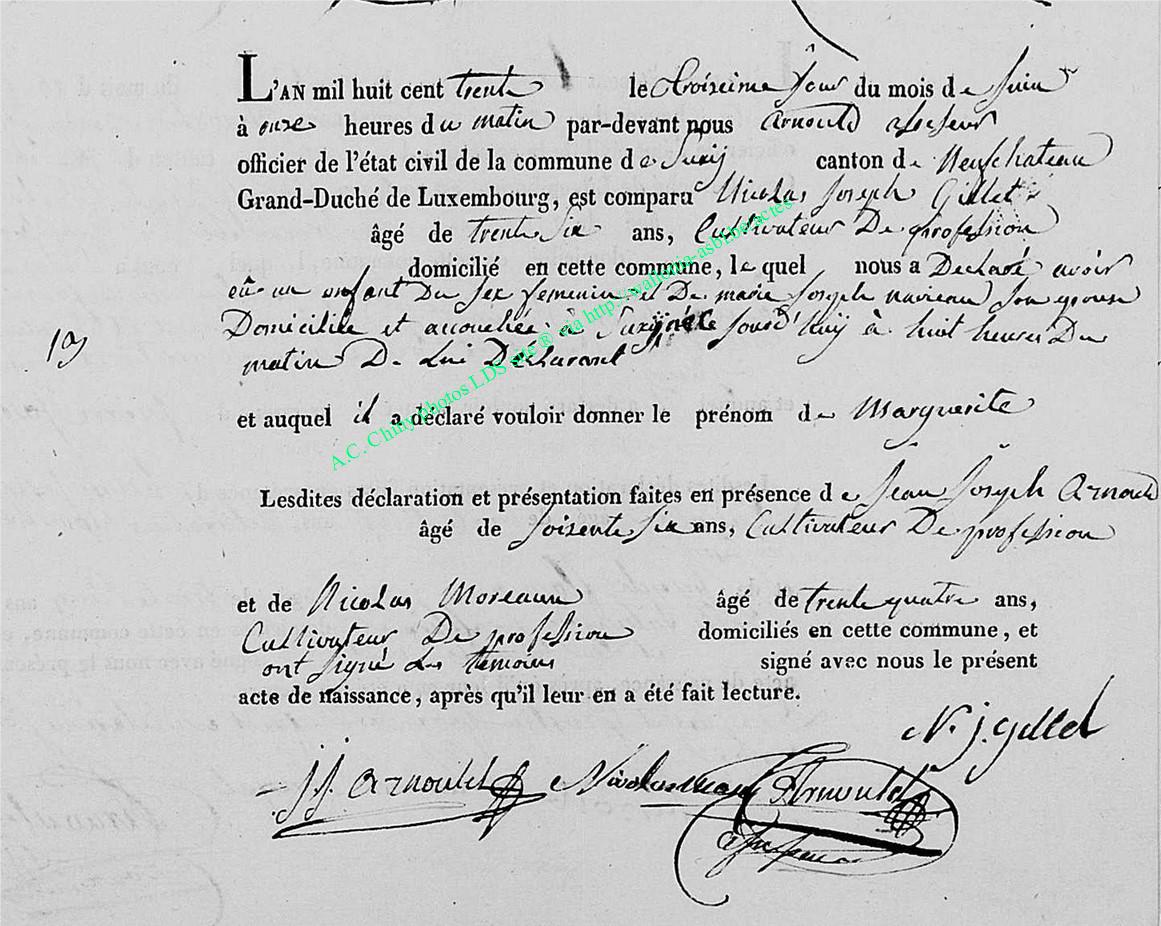 L'AN mil huit cent trente le troiseime jour du mois de juin
à onze heures du matin par-devant nous arnould assesseur
officier de l'état civil de la commune de Suxÿ canton de Neufchateau
Grand-Duché de Luxembourg, est comparu Nicolas Joseph Gillet
âgé de trente Six ans, Cultivateur De profession
domicilié en cette commune, le quel nous a Declaré avoir
eû un enfant Du sex femenin et De marie Joseph navieau Son epouse
Domiciliée et accouchée à Suxÿ née jourd'huij à huit heures Du
19
matin De Lui Déclarant
et auquel il a déclaré vouloir donner le prénom de Marguerite
Lesdites déclaration et présentation faites en présence de Jean Joseph Arnould
âgé de soisente six ans, Cultivateur De profession
et de Nicolas Moreaux âgé de trente quatre ans,
Cultivateur De profession domiciliés en cette commune, et
ont signé Les temoins signé avec nous le présent
acte de naissance, après qu'il leur en a été fait lecture.
N. j. gillet
J J Arnould Nicolas Arnould
A.C. Chiny photos LDS site ® via http://wallonia-asbl.be/actes